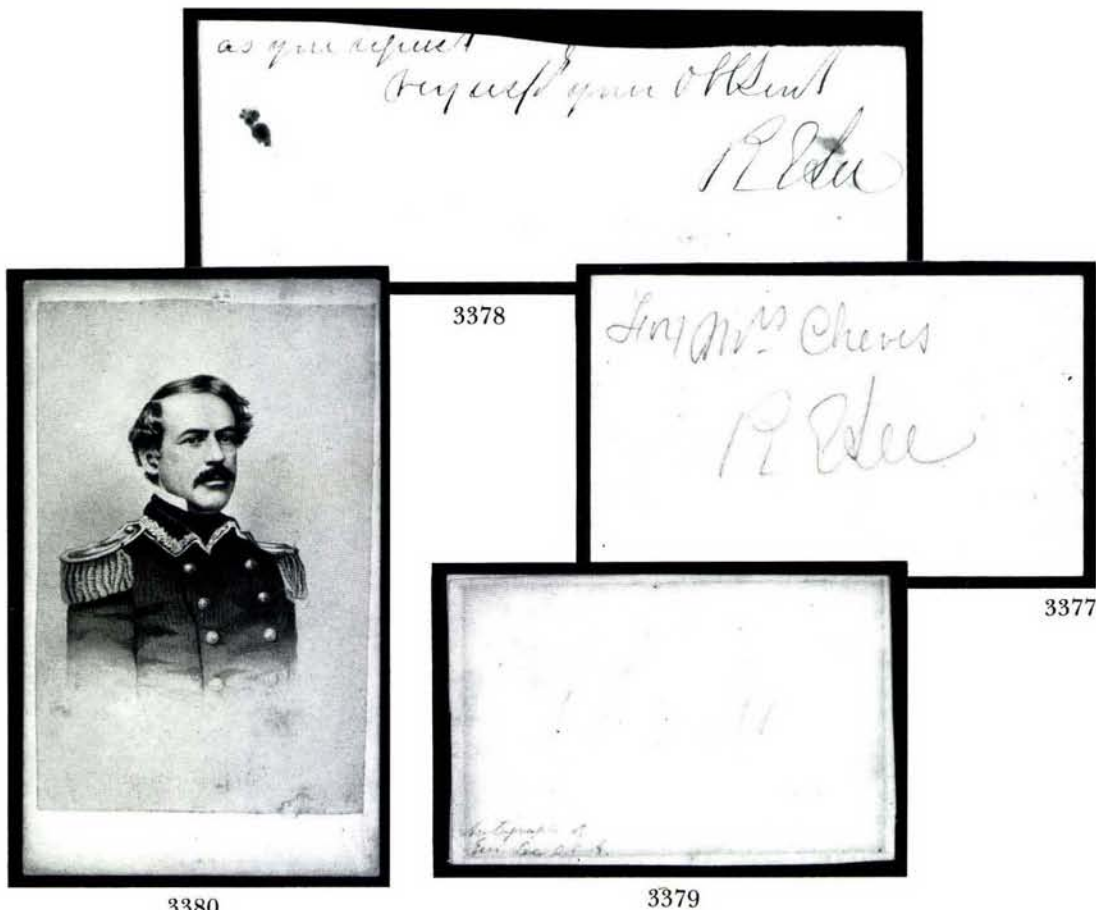 as you request
very resp your Obt Sert
R E Lee
3378
For Mrs Cheves
R E Lee
3377
Autograph of
Gen Lee
3379
3380